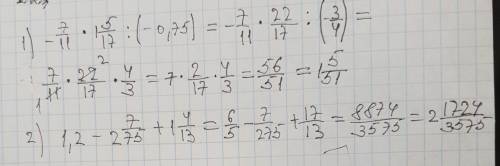 1) -7/11 · 1 5/17 : (-0,75) = -7/11 · 22/17 : (-3/4) =
7/11 · 22/17 · 4/3 = 7 · 2/17 · 4/3 = 56/51 = 1 5/51
2) 1,2 - 2 7/275 + 1 4/13 = 6/5 - 7/275 + 17/13 = 8874/3575 = 2 1724/3575